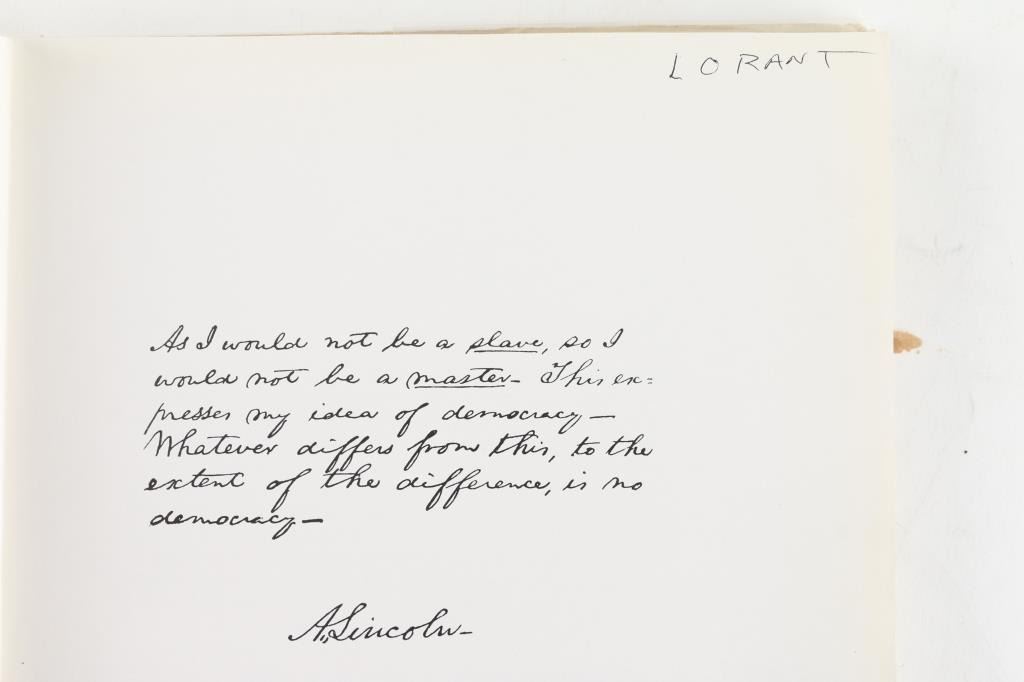 LORANT
As I would not be a slave, so I
would not be a master– This ex=
presses my idea of democracy—
Whatever differs from this, to the
extent of the difference, is no
democracy—
A. Lincoln–